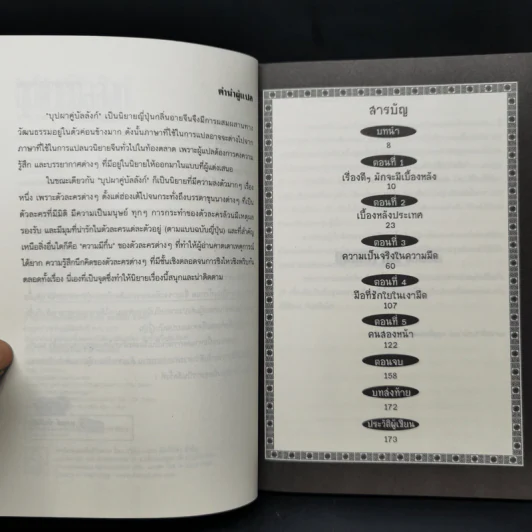 คำนำผู้แปล
"บุปผาคู่บัลลังก์" เป็นนิยายญี่ปุ่นกลิ่นอายจีนจึงมีการผสมผสานทาง
วัฒนธรรมอยู่ในตัวค่อนข้างมาก ดังนั้นภาษาที่ใช้ในการแปลอาจจะต่างไปจาก
ภาษาที่ใช้ในการแปลนวนิยายจีนทั่วไปในท้องตลาด เพราะผู้แปลต้องการคงความ
รู้สึก และบรรยากาศต่างๆ ที่มีอยู่ในนิยายให้ออกมาในแบบที่ผู้แต่งเสนอ
ในขณะเดียวกัน "บุปผาคู่บัลลังก์" ก็เป็นนิยายที่มีความลงตัวมากๆ เรื่อง
หนึ่ง เพราะตัวละครต่างๆ ตั้งแต่ฮ่องเต้ไปจนกระทั่งถึงบรรดาขุนนางต่างๆ ถือเป็น
ตัวละครที่มีมิติ มีความเป็นมนุษย์ ทุกๆ การกระทำของตัวละครล้วนมีเหตุผล
รองรับ และมีมุมที่น่ารักในตัวละครแต่ละตัวอยู่ (ตามแบบฉบับญี่ปุ่น) และที่สำคัญ
เหนือสิ่งอื่นใดก็คือ "ความมีกึ๋น" ของตัวละครต่างๆ ที่ทำให้ผู้อ่านคาดเดาเหตุการณ์
ได้ยาก ความรู้สึกนึกคิดของตัวละครต่างๆ ที่มีชั้นเชิงตลอดจนการชิงไหวชิงพริบกัน
ตลอดทั้งเรื่อง นี่เองที่เป็นจุดซึ่งทำให้นิยายเรื่องนี้สนุกและน่าติดตาม
สารบัญ
บทนำ
8
ตอนที่ 1
เรื่องดีๆ มักจะมีเบื้องหลัง
10
ตอนที่ 2
เบื้องหลังประเทศ
23
ตอนที่ 3
ความเป็นจริงในความมืด
60
ตอนที่ 4
มือที่ชักใยในเงามืด
107
ตอนที่ 5
คนสองหน้า
122
ตอนจบ
158
บทส่งท้าย
172
ประวัติผู้เขียน
173